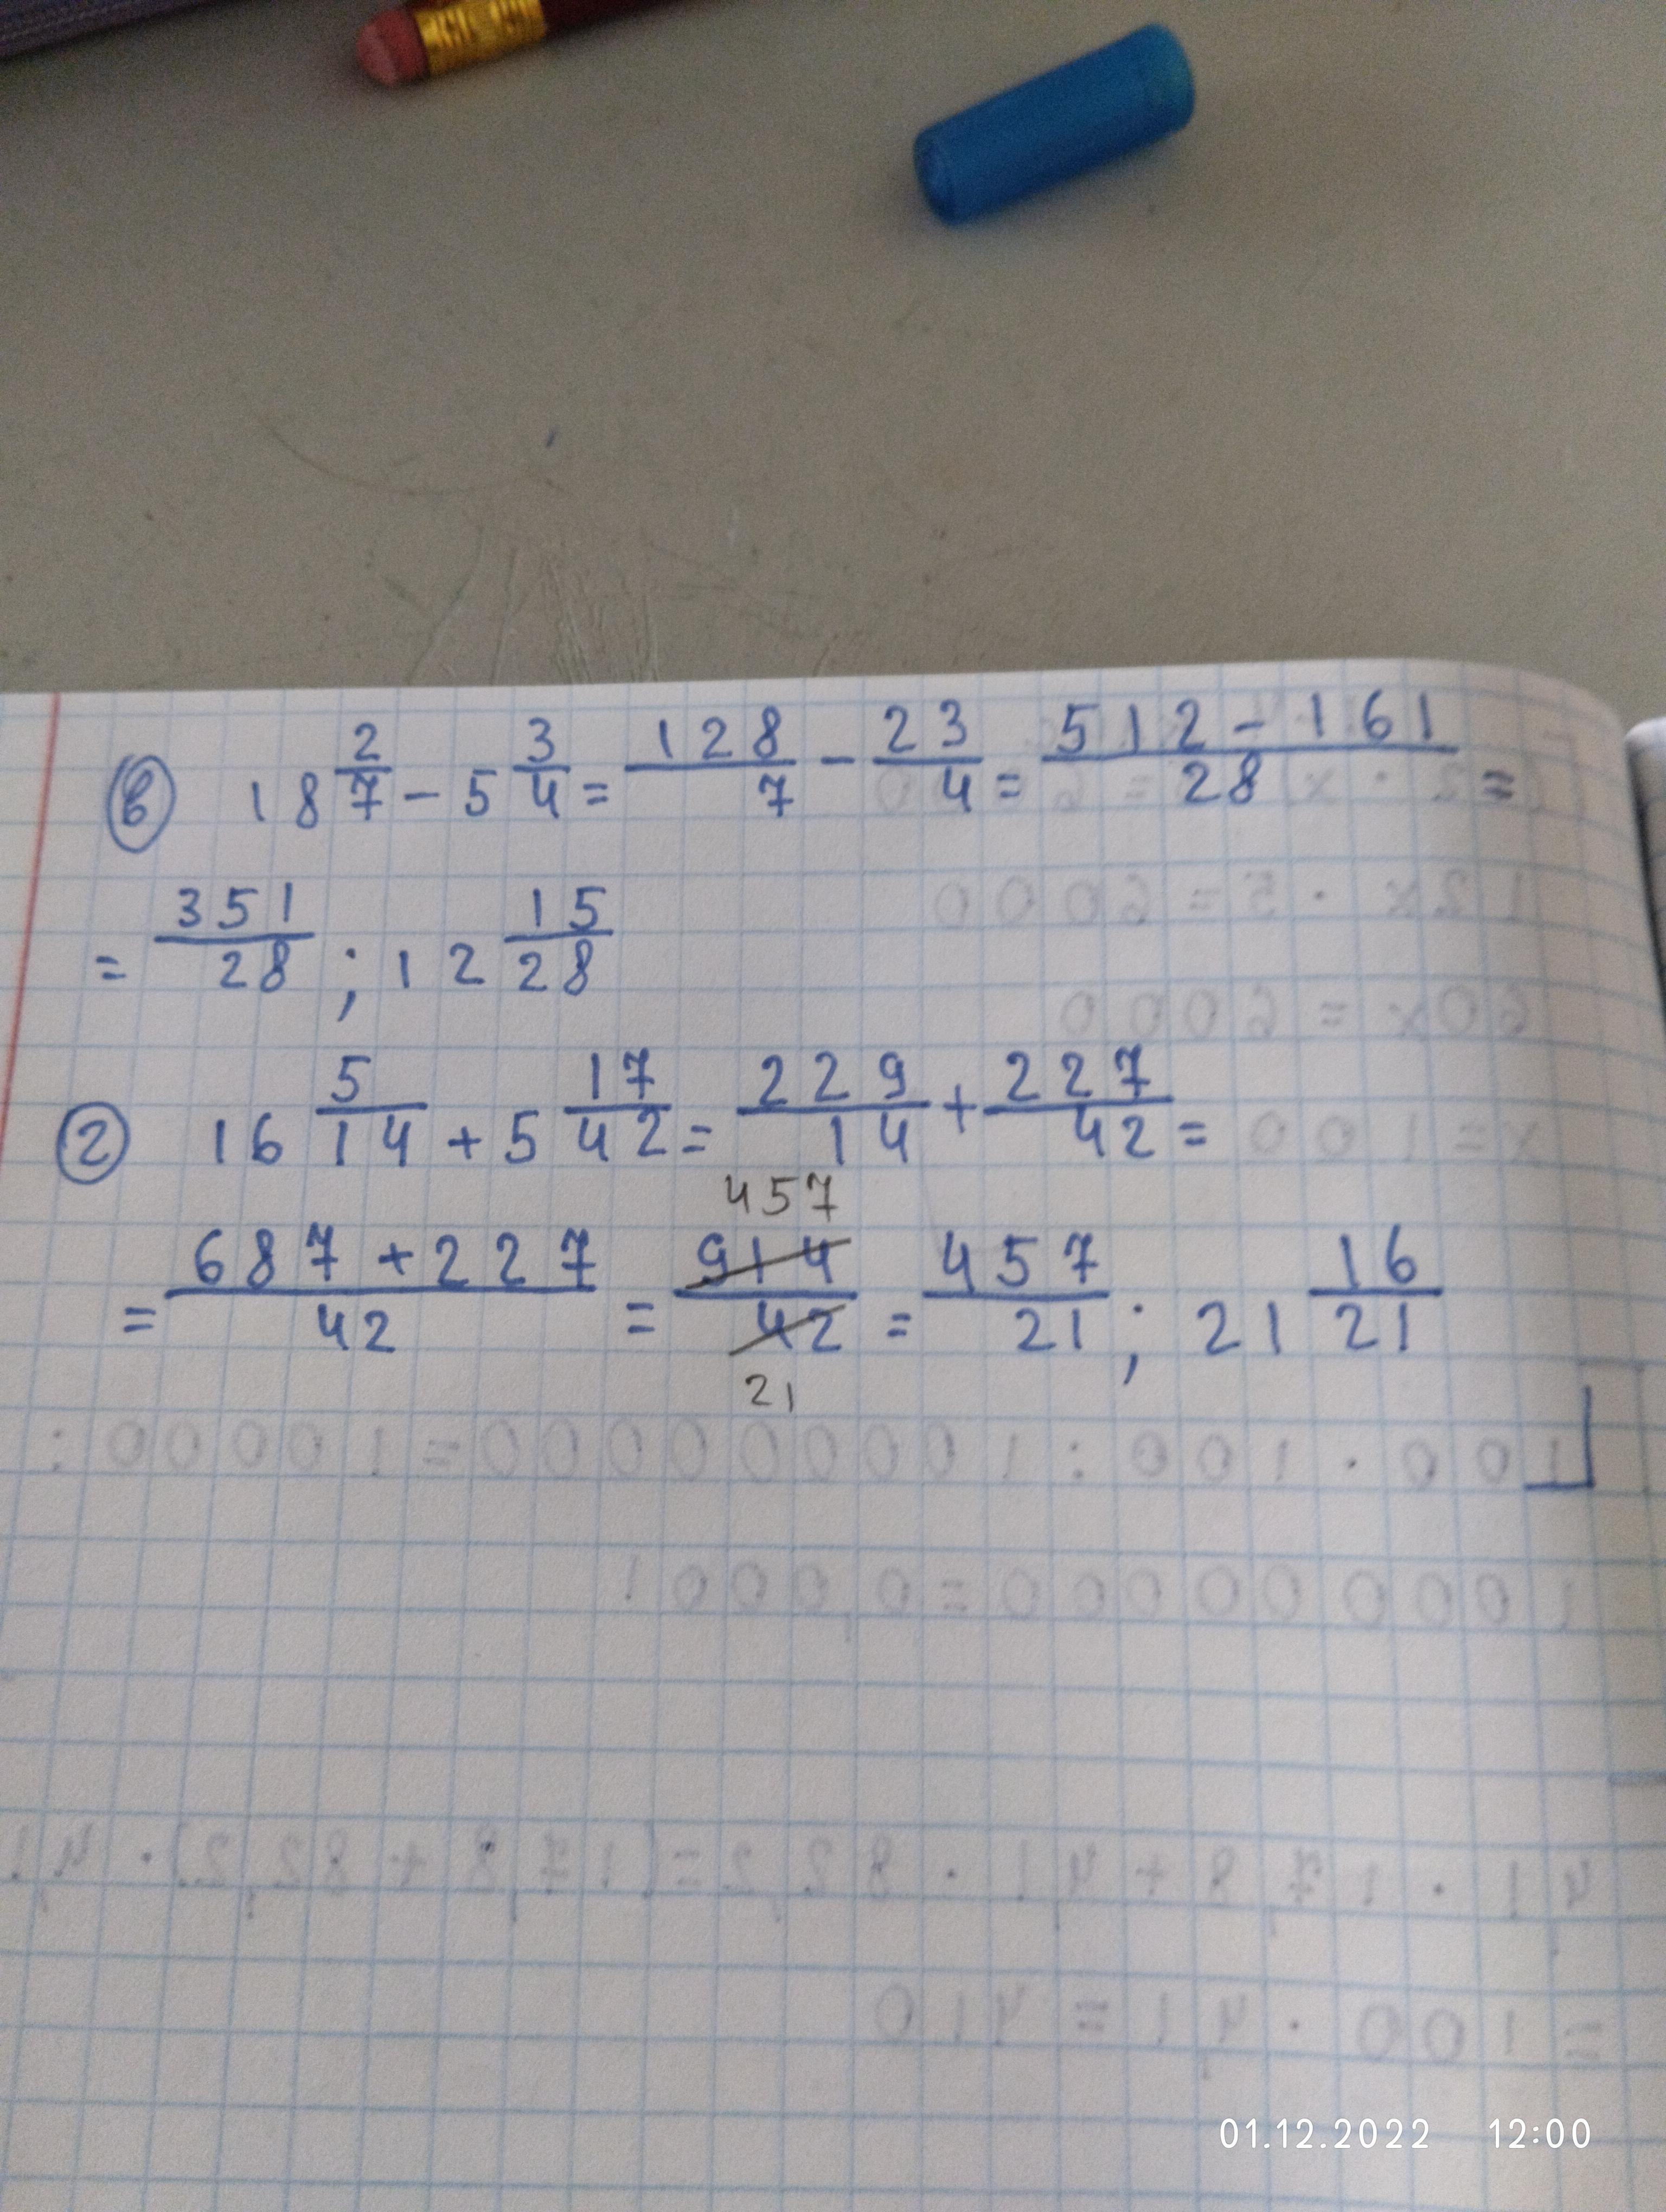 в) 18 2/7 - 5 3/4 = 128/7 - 23/4 = (512 - 161)/28 =
= 351/28 ; 12 15/28
г) 16 5/14 + 5 17/42 = 229/14 + 227/42 =
457
= (687 + 227)/42 = 914/42 = 457/21 ; 21 16/21
21
01.12.2022 12:00